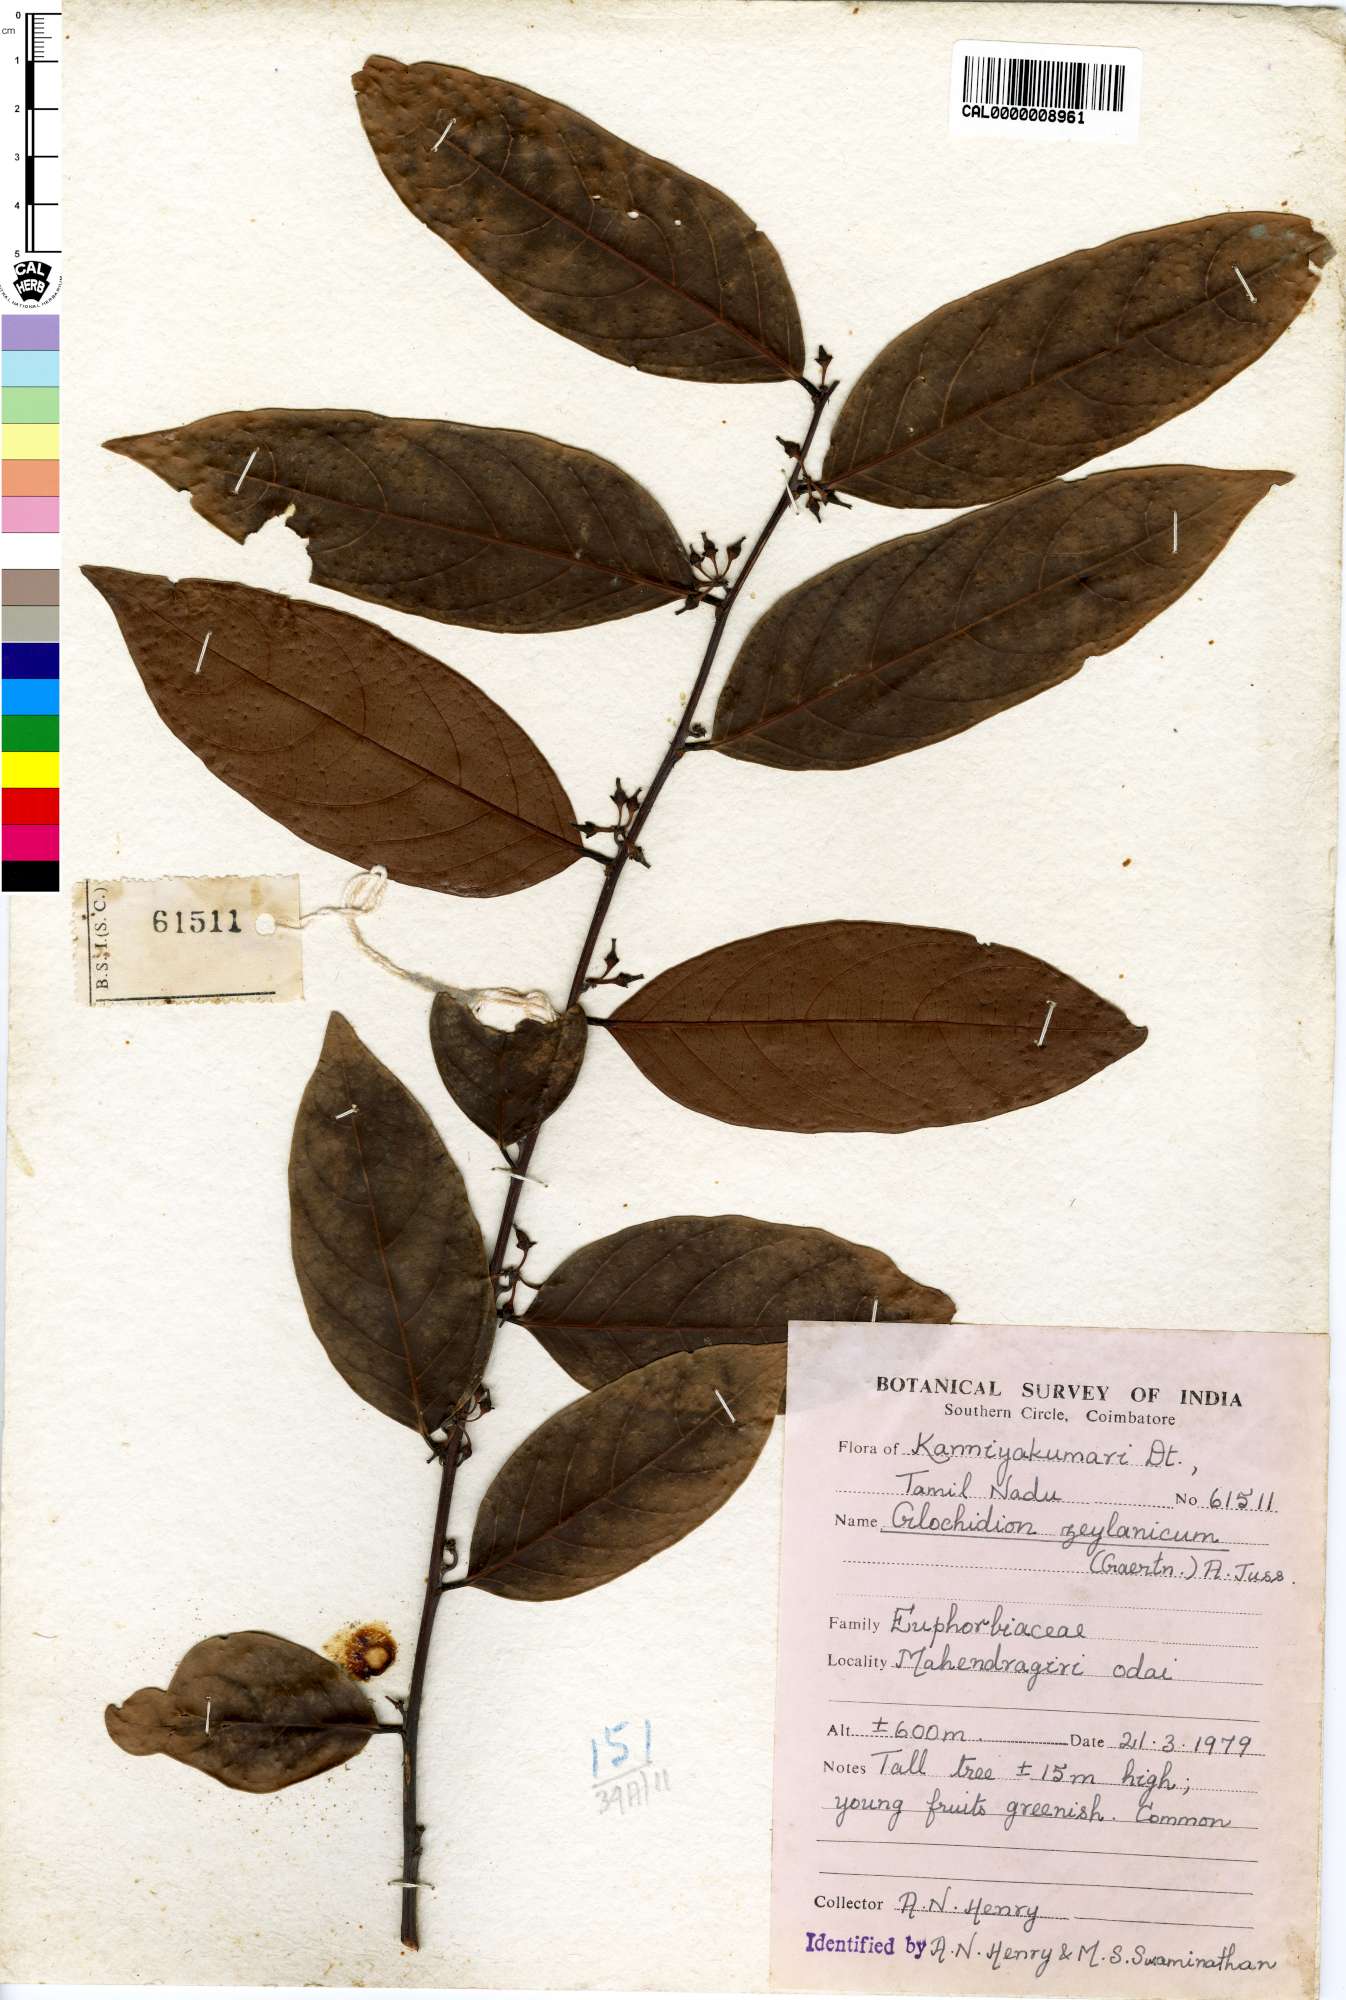 0
cm
1
2
3
4
5
CAL
HERB
CAL0000008961
B.S.I.(S.C.)
61511
BOTANICAL SURVEY OF INDIA
Southern Circle, Coimbatore
Flora of Kanniyakumari Dt.,
Tamil Nadu No 61511
Name Glochidion zeylanicum
(Gaertn.) A. Juss.
Family Euphorbiaceae
Locality Mahendragiri odai
Alt. ±600m. Date 21.3.1979
Notes Tall tree ±15m high;
young fruits greenish. Common
Collector A.N. Henry
Identified by A.N. Henry & M.S. Swaminathan
151